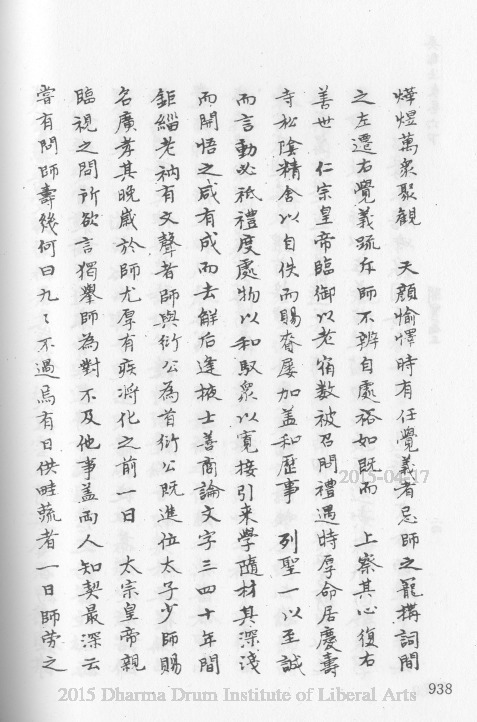 燁煜萬衆聚観　天顔愉懌時有任覺義者忌師之寵搆詞間
之左遷右覺義疏斥師不辨自處裕如既而　上察其心復右
善世　仁宗皇帝臨御以老宿数被召問禮遇時厚命居慶壽
寺松陰精舍以自佚而賜賚屡加盖和歷事　列聖一以至誠
而言動必祇禮度處物以和馭衆以寛接引来學随材其深淺
而開悟之咸有成而去觧后逢掖士善商論文字三四十年間
鉅緇老衲有文聲者師與衍公為首衍公既進位太子少師賜
名廣孝其晚歲於師尤厚有疾将化之前一日　太宗皇帝親
臨視之問所欲言獨舉師為對不及他事盖兩人知契最深云
甞有問師壽幾何曰九〻不過烏有日供畦蔬者一日師勞之
2015-04-17
938
2015 Dharma Drum Institute of Liberal Arts